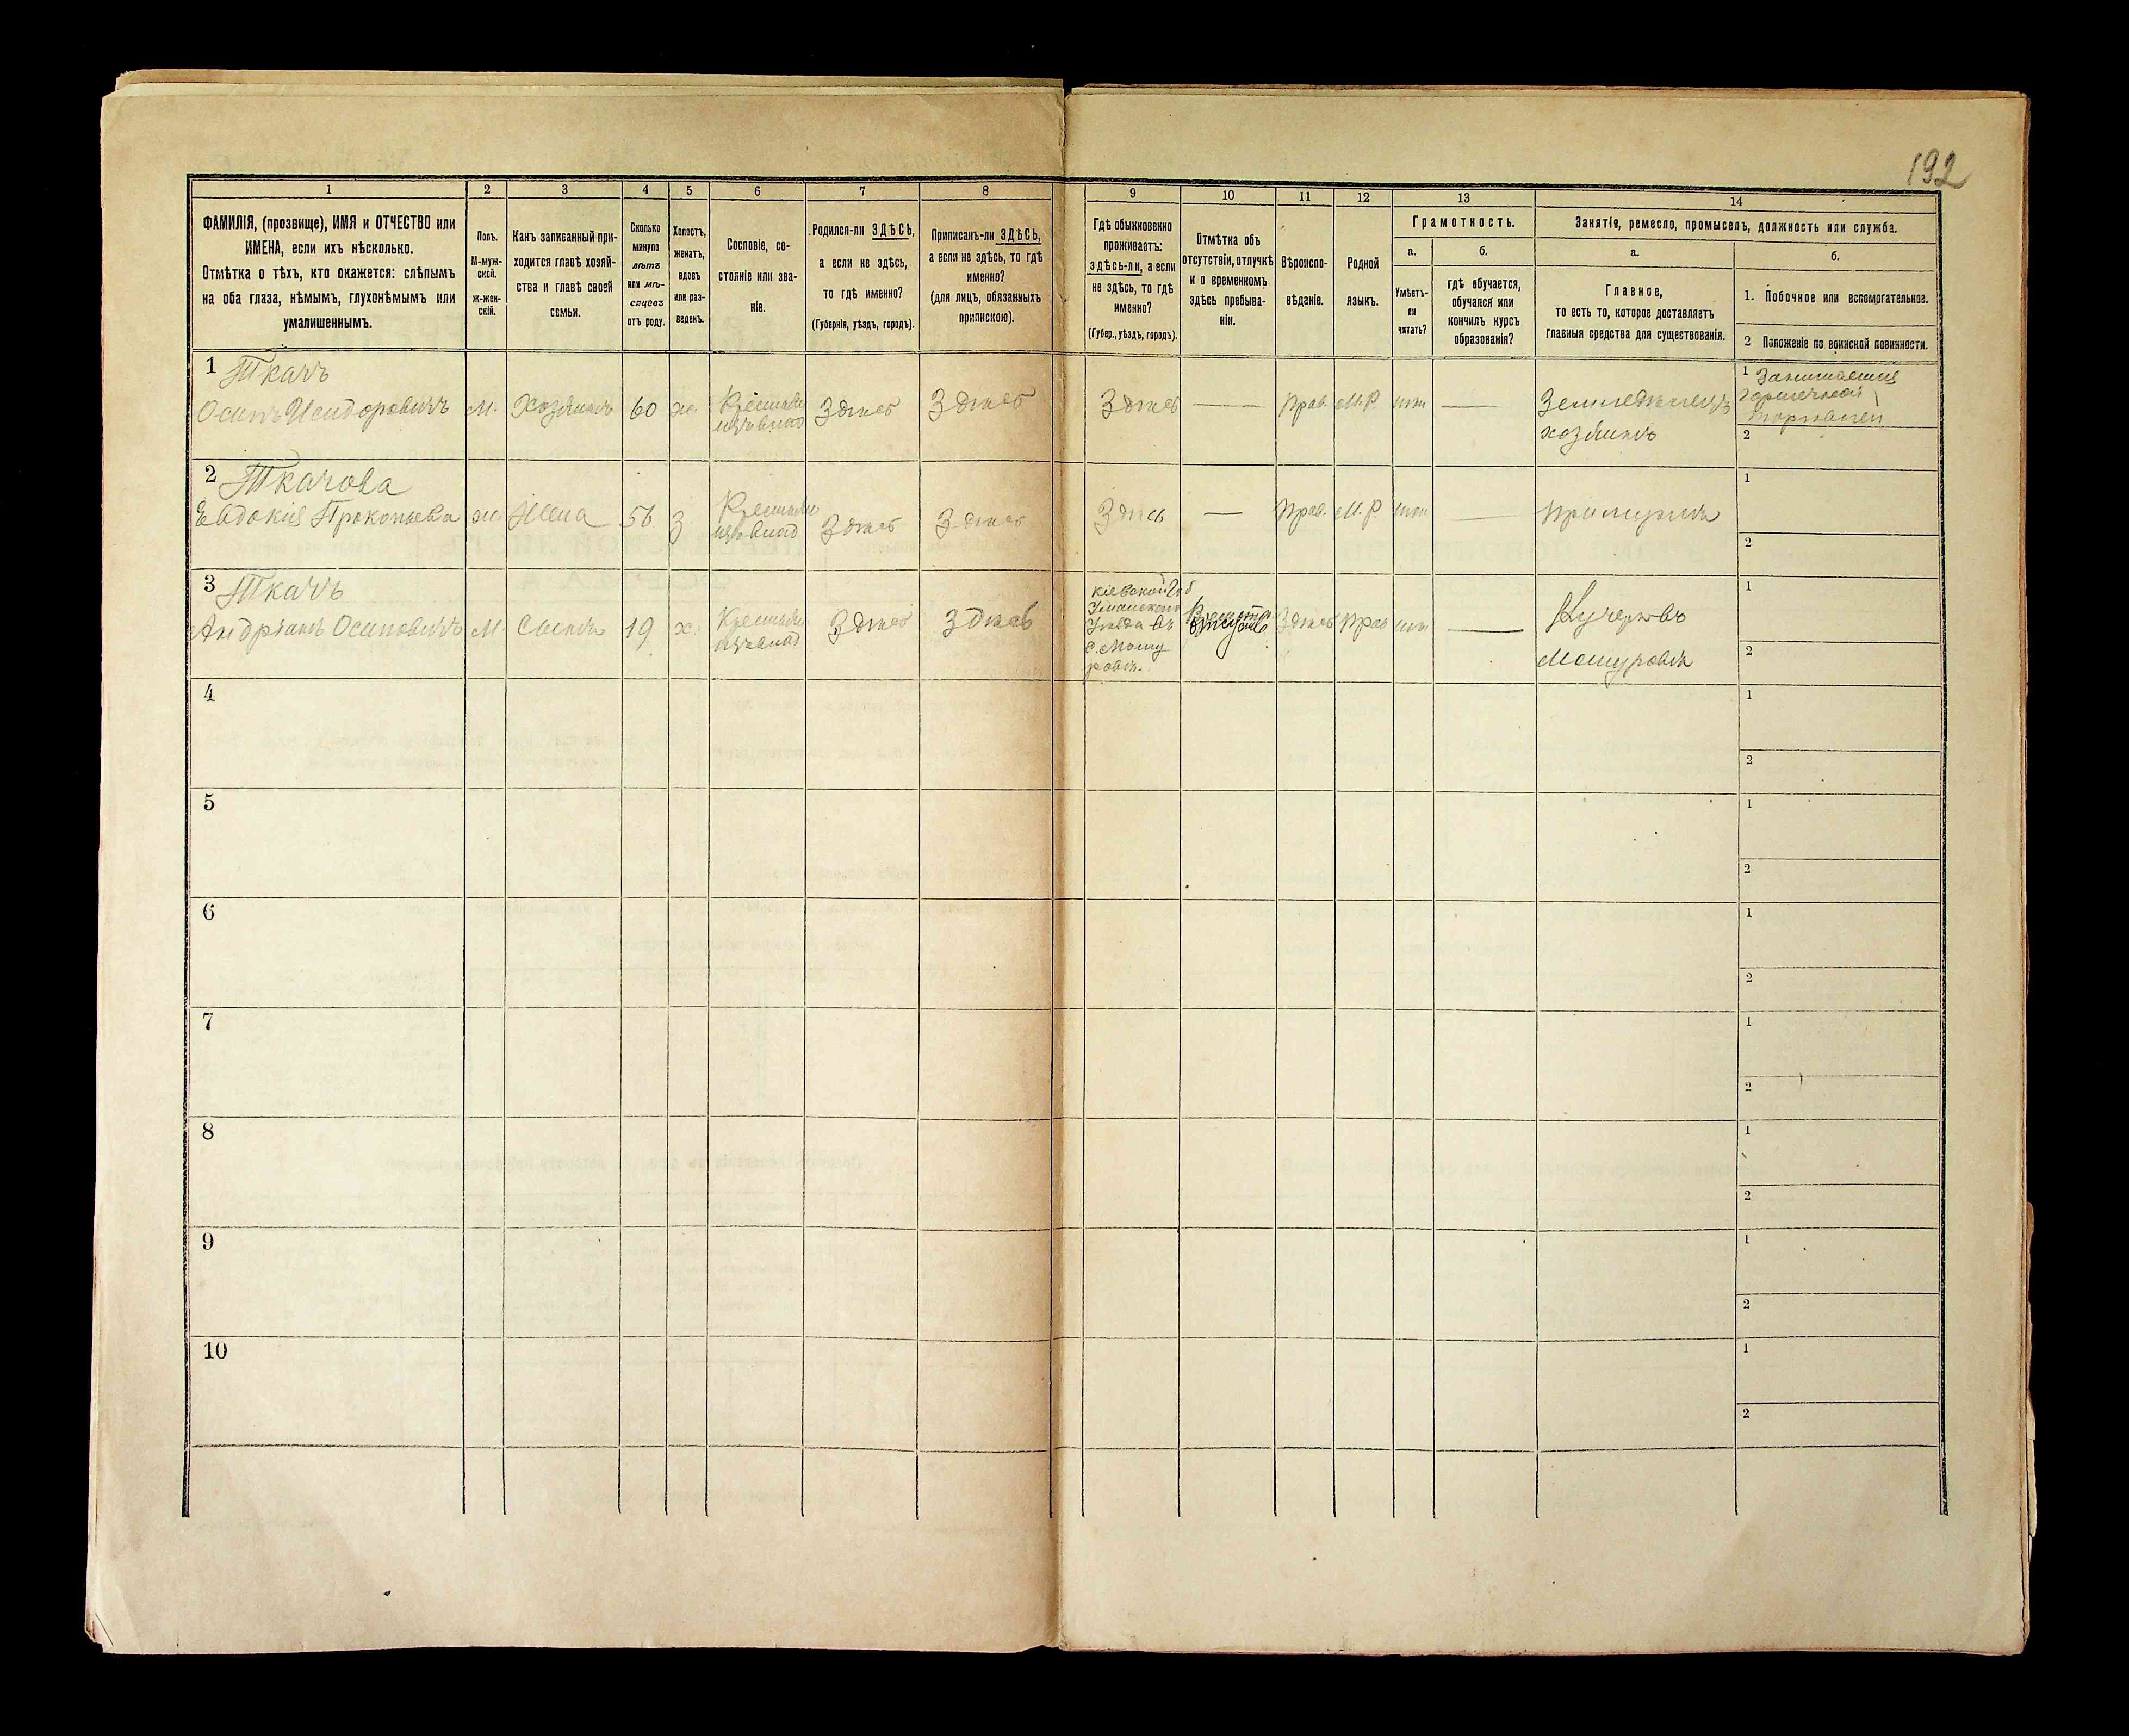 192
1
2
3
4
5
6
7
8
9
10
11
12
13
14
ФАМИЛІЯ, (прозвище), ИМЯ и ОТЧЕСТВО или
ИМЕНА, если ихъ нѣсколько.
Отмѣтка о тѣхъ, кто окажется: слѣпымъ
на оба глаза, нѣмымъ, глухонѣмымъ или
умалишеннымъ.
Полъ.
М-муж-
ской.
ж-жен-
скій.
Какъ записанный при-
ходится главѣ хозяй-
ства и главѣ своей
семьи.
Сколько
минуло
лѣтъ
или мѣ-
сяцевъ
отъ роду.
Холостъ,
женатъ,
вдовъ
или раз-
веденъ.
Сословіе, со-
стояніе или зва-
ніе.
Родился-ли ЗДѢСЬ,
а если не здѣсь,
то гдѣ именно?
(Губернія, уѣздъ, городъ).
Приписанъ-ли ЗДѢСЬ,
а если не здѣсь, то гдѣ
именно?
(для лицъ, обязанныхъ
припискою).
Гдѣ обыкновенно
проживаетъ:
здѣсь-ли, а если
не здѣсь, то гдѣ
именно?
(Губер., уѣздъ, городъ).
Отмѣтка объ
отсутствіи, отлучкѣ
и о временномъ
здѣсь пребыва-
ніи.
Вѣроиспо-
вѣданіе.
Родной
языкъ.
Грамотность.
а.
б.
Умѣетъ-
ли
читать?
гдѣ обучается,
обучался или
кончилъ курсъ
образованія?
Занятія, ремесло, промыселъ, должность или служба.
а.
б.
Главное,
то есть то, которое доставляетъ
главныя средства для существованія.
1. Побочное или вспомогательное.
2 Положеніе по воинской повинности.
1 Ткачъ
Осипъ Исидоровичъ М. Хозяинъ 60 ж. Крестьян
Здѣсь Здѣсь Здѣсь — Прав. М.Р. нѣтъ — Земледѣлецъ
хозяинъ
1 Занимается
торговлей
2
2 Ткачова
Евдокія Прокопьева ж. Жена 56 З Крестьян
Здѣсь Здѣсь Здѣсь — Прав. М.Р. нѣтъ — При мужѣ
1
2
3 Ткачъ
Андріанъ Осиповичъ М. Сынъ 19 х. Крестьян
Здѣсь Здѣсь
Кіевской Губ
Уманскаго
Уѣзда въ
с. Машу
ровкѣ.
Здѣсь Прав нѣтъ — Кучеръ въ
Машуровкѣ
1
2
4
1
2
5
1
2
6
1
2
7
1
2
8
1
2
9
1
2
10
1
2